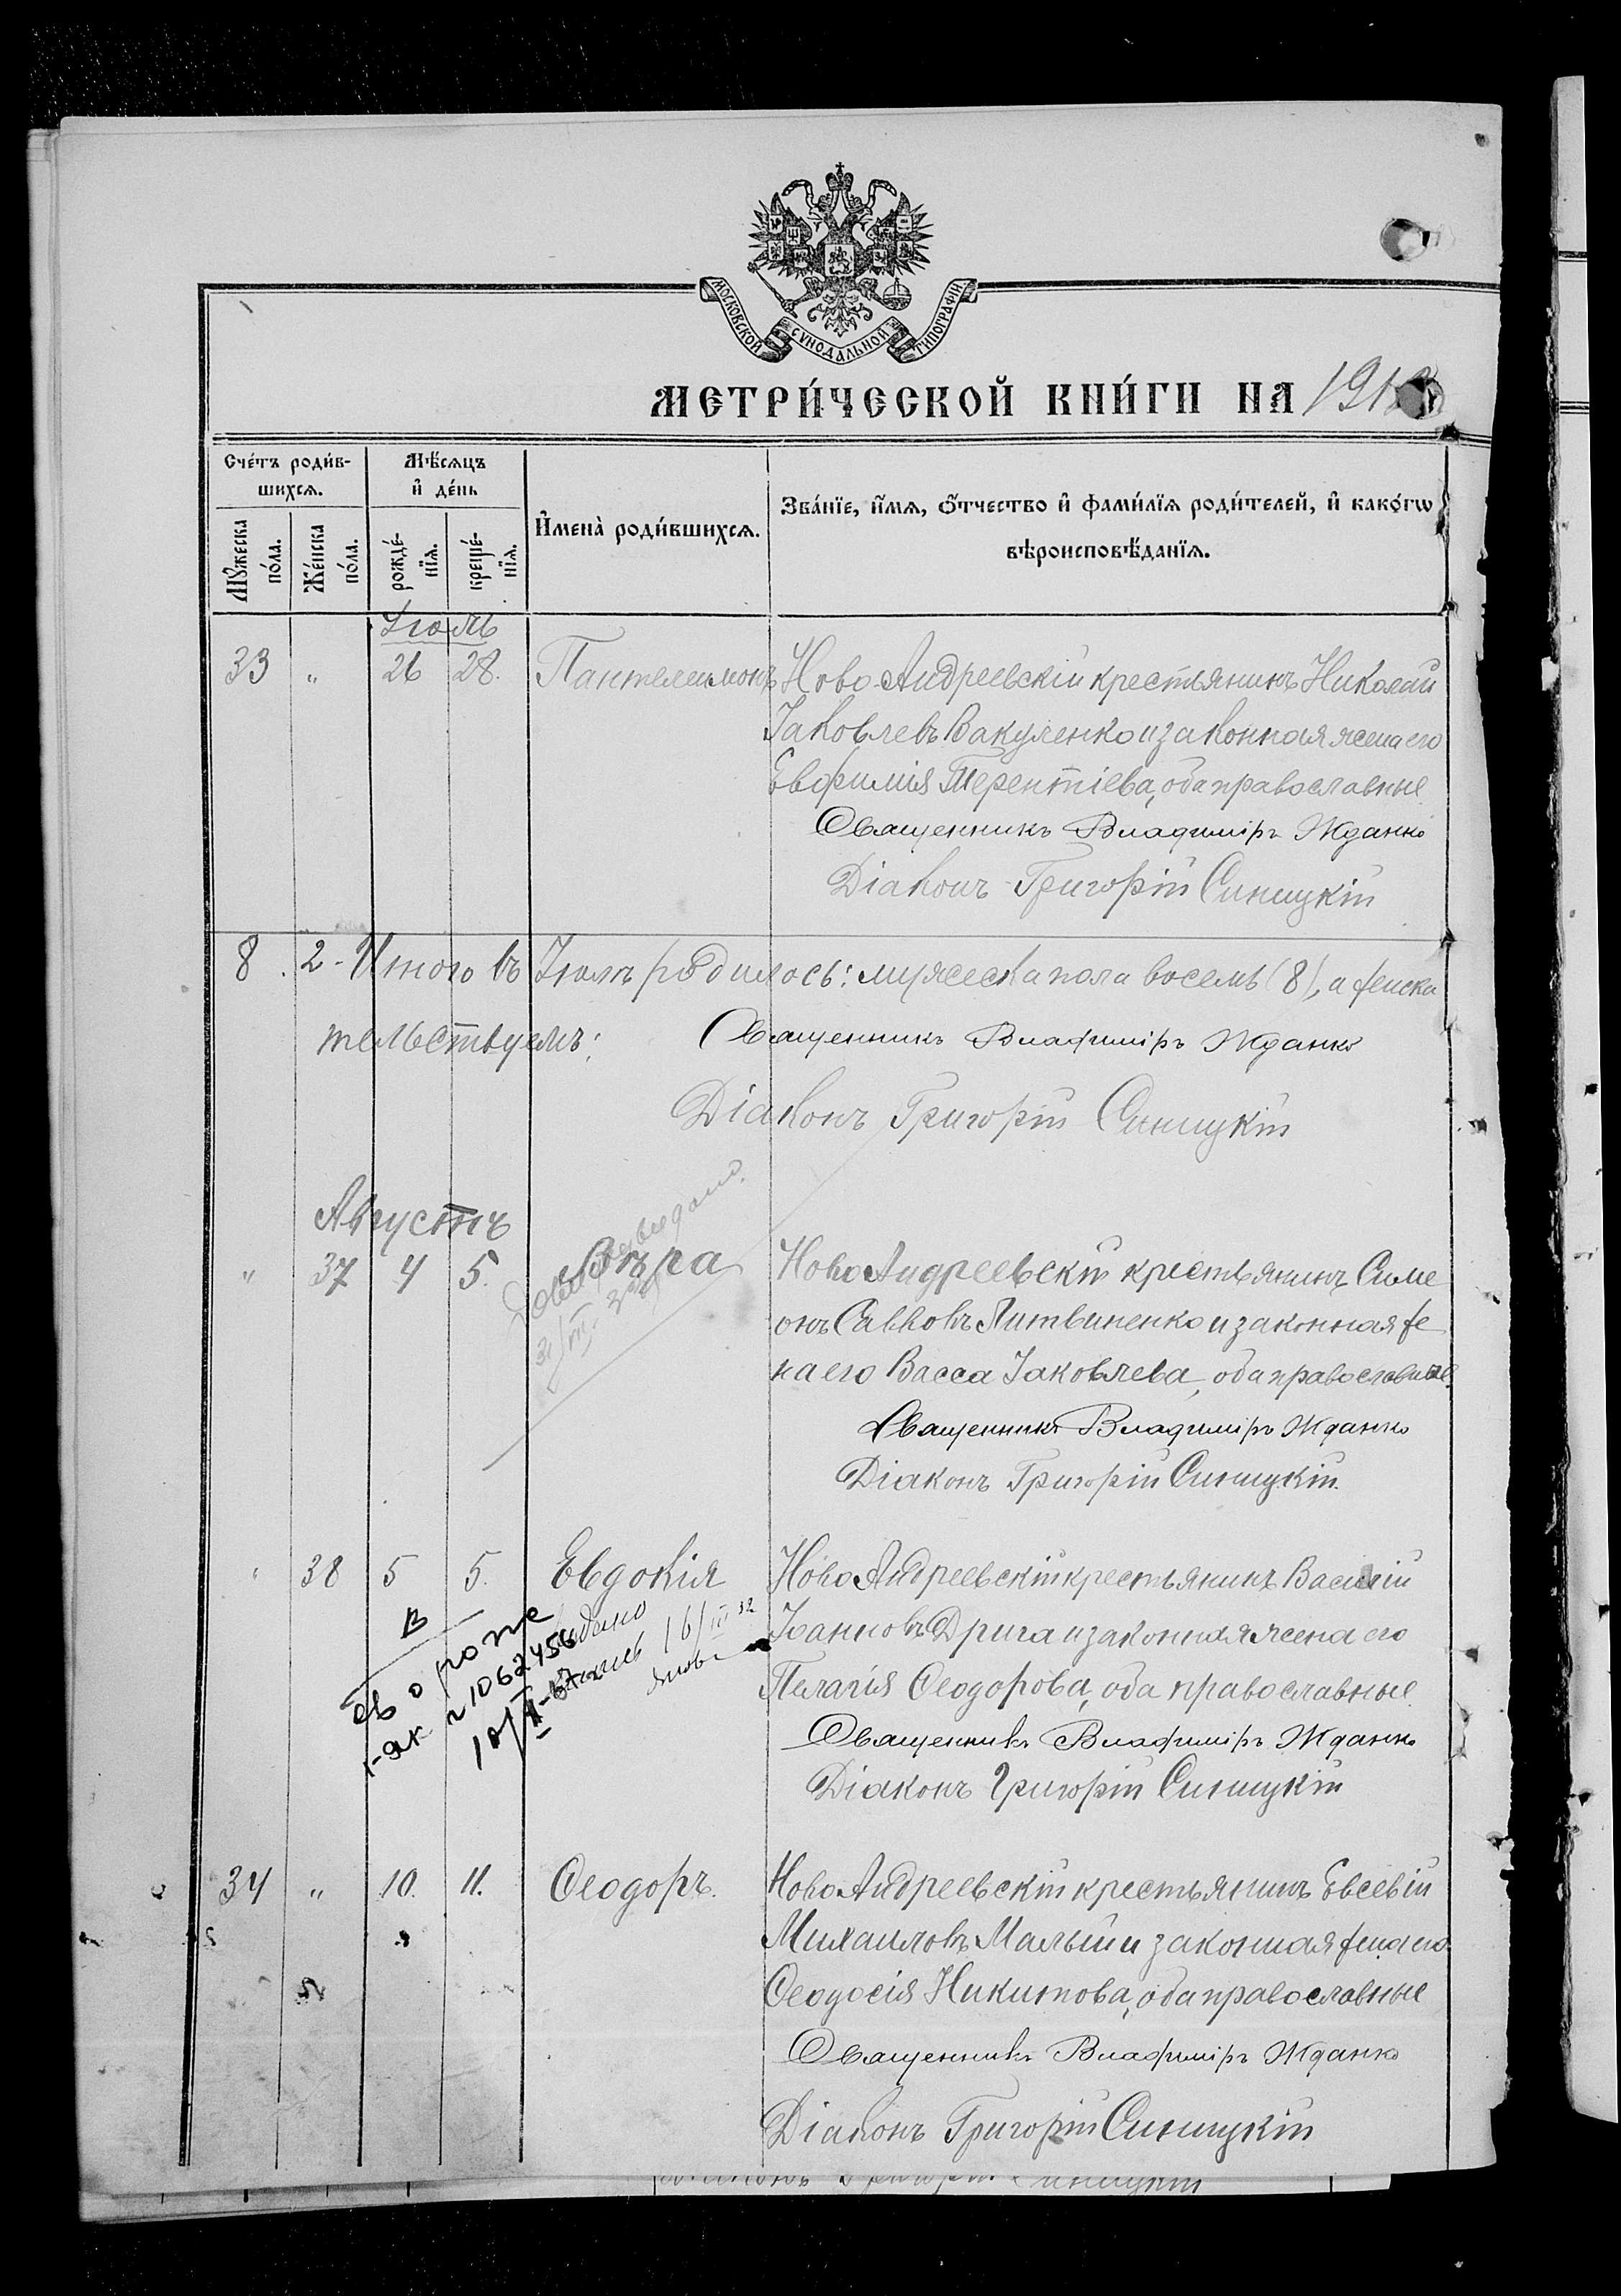 МОСКОВСКОЙ СѴНОДАЛЬНОЙ ТИПОГРАФІИ
МЕТРИ́ЧЕСКОЙ КНИ́ГИ НА 191
Сче́тъ роди́в-
шихсѧ.
Мѣ́сѧцъ
и҆ де́нь
Мꙋ́жеска
по́ла.
Же́нска
по́ла.
рожде́-
нїѧ.
креще́-
нїѧ.
И҆мена̀ роди́вшихсѧ.
Зва́нїе, и҆́мѧ, ѻ҆́тчество и҆ фами́лїѧ роди́телей, и҆ како́гѡ
вѣроисповѣ́данїѧ.
Іюль
33 " 26 28. Пантелеимонъ Ново-Андреевскій крестьянинъ Николай
Іаковлевъ Вакуленко и законная жена его
Евфимія Терентіева, оба православные
Священникъ Владиміръ Жданко
Діаконъ Григорій Синицкій
8. 2 - Итого въ Іюлѣ родилось: мужеска пола восемь (8), а женска
тельствуемъ: Священникъ Владиміръ Жданко
Діаконъ Григорій Синицкій
Августъ
" 37 4 5. Вѣра Ново Андреевскій крестьянинъ Симе
онъ Савковъ Литвиненко и законная же
на его Васса Іаковлева, оба православные.
Священникъ Владиміръ Жданко
Діаконъ Григорій Синицкій.
" 38 5 5. Евдокія Ново Андреевскій крестьянинъ Василій
Іоанновъ Дрига и законная жена его
Пелагія Ѳеодорова, оба православные.
Священникъ Владиміръ Жданко
Діаконъ Григорій Синицкій
св о роже
1-ЯК № 1062456
34 " 10. 11. Ѳеодоръ. Ново Андреевскій крестьянинъ Евсевій
Михаиловъ Малый и законная жена его
Ѳеодосія Никитова, оба православные
Священникъ Владиміръ Жданко
Діаконъ Григорій Синицкій